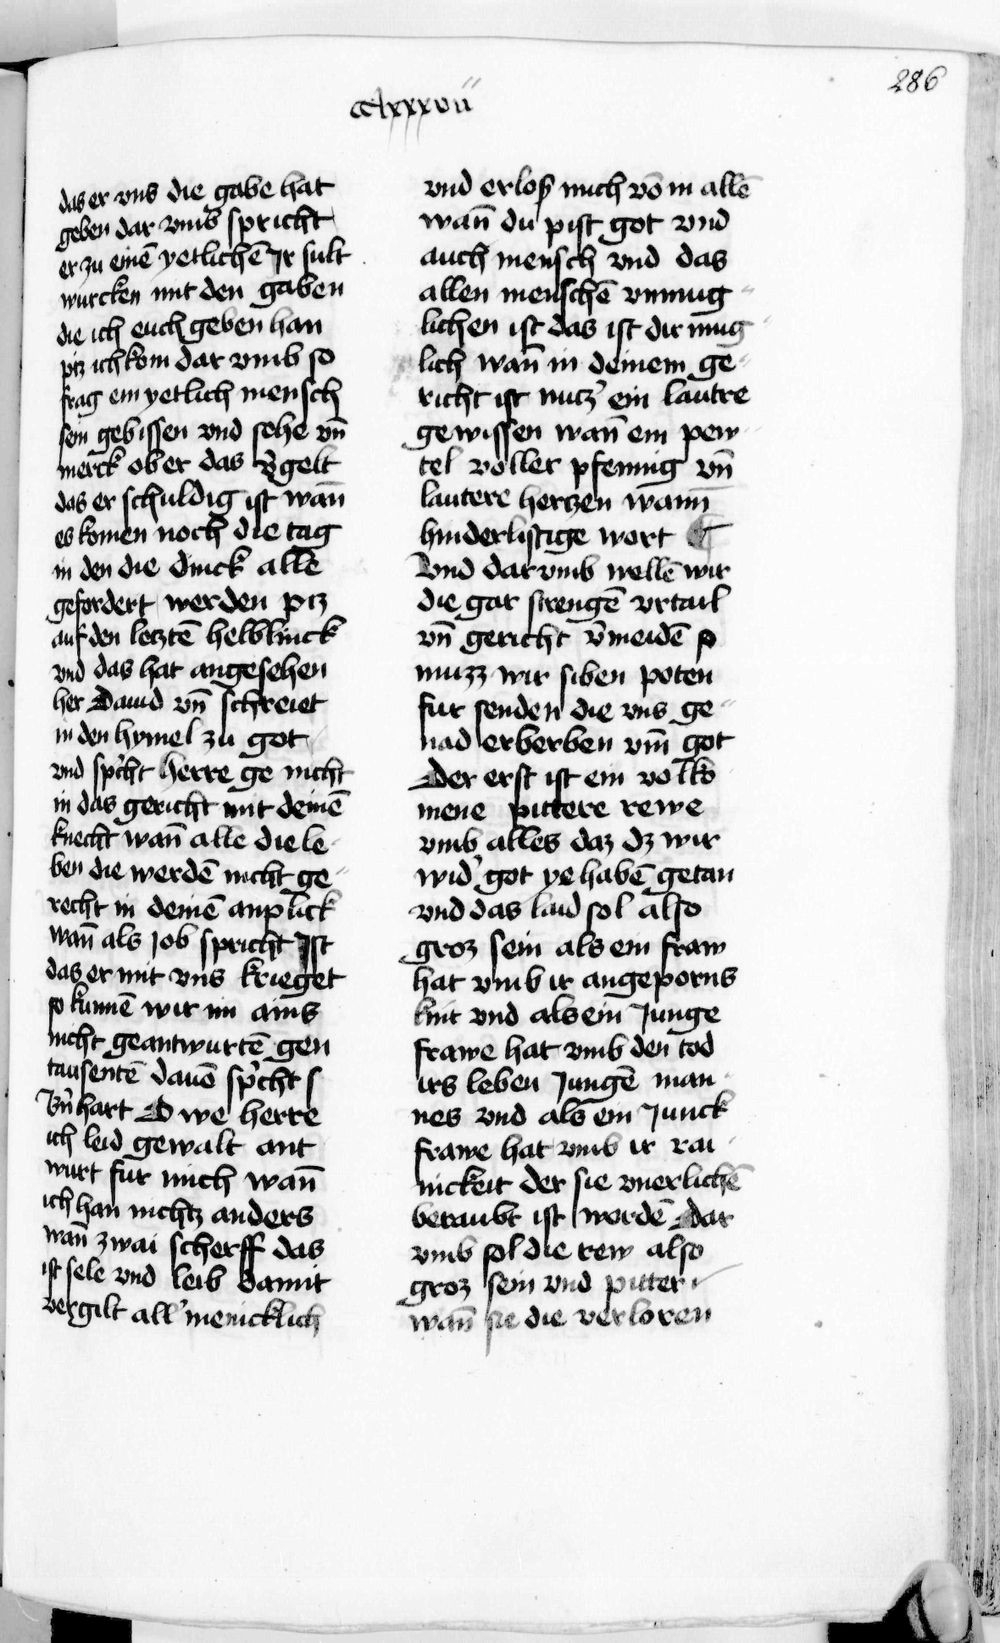 286
cclxxxvii
das er vns die gabe hat
geben dar vmb spricht
er zu einē yetlichē Ir sult
wurcken mit den gaben
die ich euch geben han
piz ich kom dar vmb so
frag ein yetlich mensch
sein gebissen vnd sehe vn̄
merck ob er das v̓gelt
das er schuldig ist wan̄
es komen noch die tag
in den die dinck alle
gefordert werden piz
auf den letztē helblinck
vnd das hat angesehen
her Dauid vn̄ schreiet
in den hymel zu got
vnd sp̓cht herre ge nicht
in das gericht mit deinē
knecht wan̄ alle die le-
ben die werdē nicht ge-
recht in deinē anplick
wan̄ als Job spricht Ist
das er mit vns krieget
so kunnē wir im ains
nicht geantwurtē gen
tausentē dauō sp̓cht s
B̓nhart O we herre
ich leid gewalt ant
wurt fur mich wan̄
ich han nichtz anders
wan̄ zwai scherff das
ist sele vnd leib damit
vergilt all̓ menicklich
vnd erloß mich vō in allē
wan̄ du pist got vnd
auch mensch vnd das
allen menschē vnmug-
lichen ist das ist dir mug-
lich wan̄ in deinem ge-
richt ist nutz̓ ein lautre
gewissen wan̄ ein pew-
tel voller pfennig vn̄
lautere hertzen wann
hinderlistige wort
Vnd dar vmb wellē wir
die gar strengē vrtail
vn̄ gericht v̓meidē so
muzz wir siben poten
fur senden die vns ge-
nad erberben vm̄ got
Der erst ist ein volko
mene pittere rewe
vmb alles daz dz wir
wid̓ got ye habē getan
vnd das laid sol also
groz sein als ein fraw
hat vmb ir angeporns
kint vnd als ein Junge
frawe hat vmb den tod
irs leben Jungē man-
nes vnd als ein Junck
frawe hat vmb ir rai-
nickeit der sie vnerlichē
beraubt ist wordē Dar
vmb sol die rew also
groz sein vnd pitter
wan̄ sie die verloren